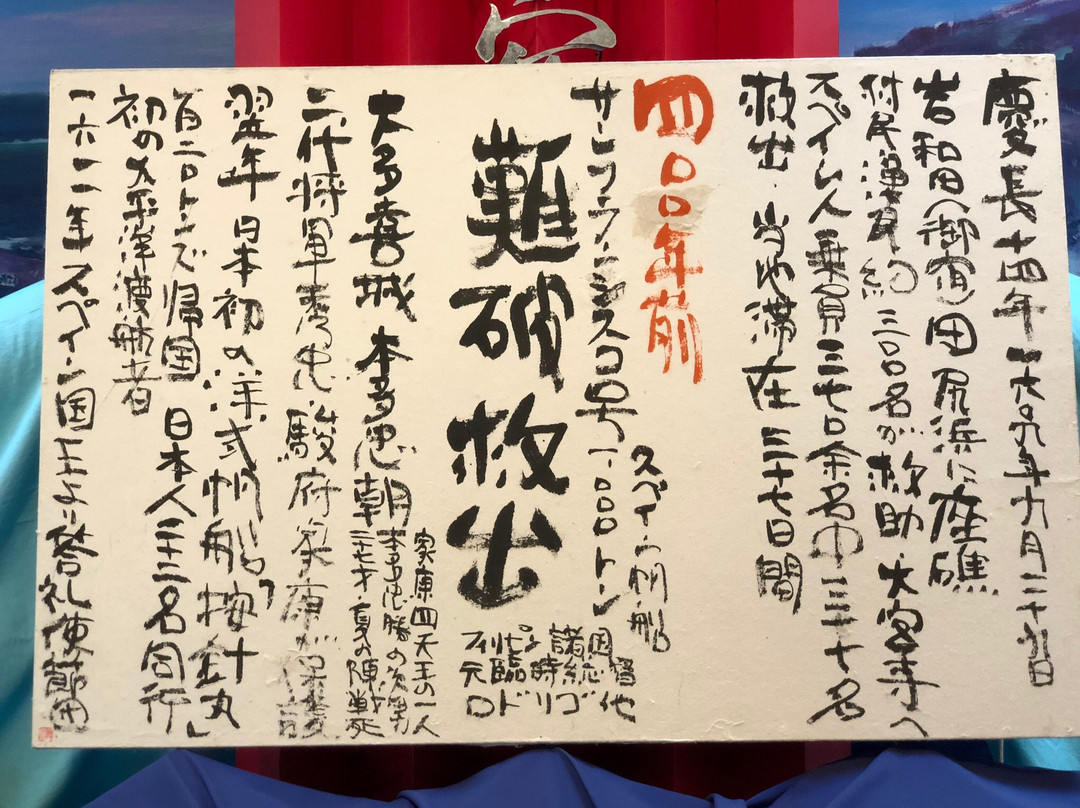 慶長十四年一六〇九年九月三十日
岩和田(御宿)田尻浜に座礁
村民漁夫約三〇〇名が救助・大宮寺へ
スペイン人乗員三七〇余名中三一七名
救出・当地滞在三十七日間
四〇〇年前
サンフランシスコ号 一、〇〇〇トン
スペイン帆船
難破救出
諸国
総
臨時
ドリゴ
ロ
大多喜城 本多忠朝
家康四天王の一人
本多忠勝の次男
三七才 夏の陣戦死
二代将軍秀忠・駿府家康が保護
翌年 日本初の洋式帆船「按針丸」
百二〇トンズ帰国 日本人二十三名同行
初の太平洋渡航者
一六一一年スペイン国王より答礼使節団